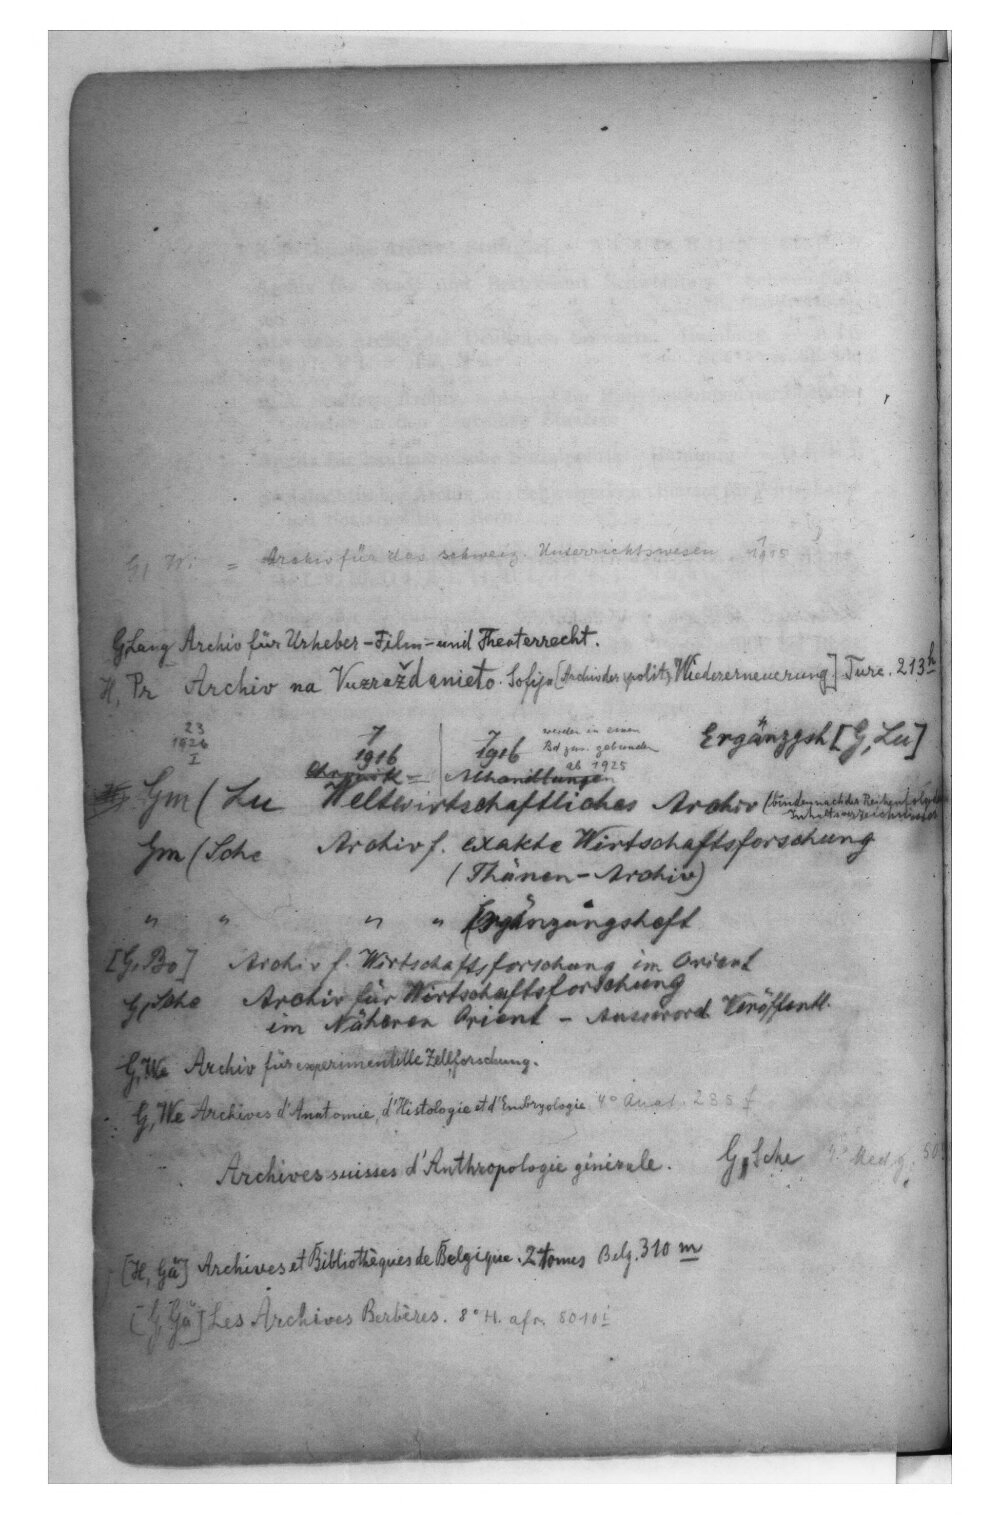 G, Wi = Archiv für das schweiz. Unterrichtswesen 1 1915
G, Lang Archiv für Urheber-Film- und Theaterrecht.
H, Pr Archiv na Vuzraždanieto. Sofija [Archiv der polit. Wiedererneuerung] Turc. 213h
23 1926 I
7 1916 Chronik = 7 1916 Abhandlungen
werden in einen
Bd zus. gebunden
ab 1925
Ergänzgsh [G, Lu]
Gm (Lu Weltwirtschaftliches Archiv (binden nach der Reihenfolge
Inhaltsverzeichnisses
Gm (Sche Archiv f. exakte Wirtschaftsforschung
(Thünen-Archiv)
" " " " Ergänzungsheft
[G, Bo] Archiv f. Wirtschaftsforschung im Orient
G, Sche Archiv für Wirtschaftsforschung
im Näheren Orient - Ausserord. Veröffentl.
G, We Archiv für experimentelle Zellforschung.
G, We Archives d'Anatomie, d'Histologie et d'Embryologie 4° Anat. 235 f
Archives suisses d'Anthropologie générale. G, Sche 4° Med. g. 50
[H, Gä] Archives et Bibliothèques de Belgique. 2 tomes Belg. 310 m
[G, Gä] Les Archives Berbères. 8° H. afr. 8010 i